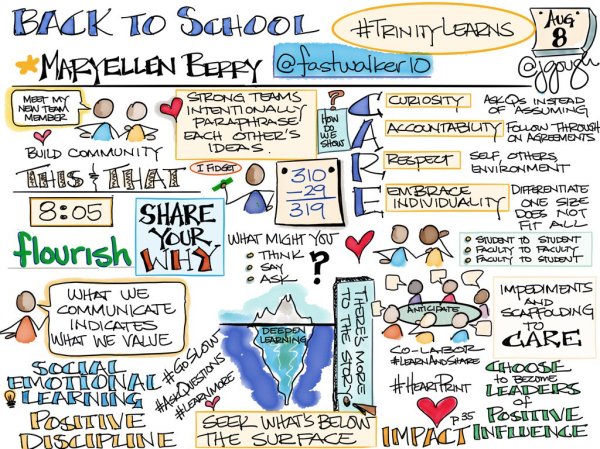 BACK TO SCHOOL
#TRINITYLEARNS
AUG
8
@jgough
MARYELLEN BERRY @fastwalker10
MEET MY
NEW TEAM
MEMBER
BUILD COMMUNITY
STRONG TEAMS
INTENTIONALLY
PARAPHRASE
EACH OTHER'S
IDEAS.
?
HOW
DO
WE
SHOW
CARE
CURIOSITY
ASK QS INSTEAD
OF ASSUMING
ACCOUNTABILITY
FOLLOW THROUGH
ON AGREEMENTS
RESPECT
SELF, OTHERS,
ENVIRONMENT
EMBRACE
INDIVIDUALITY
DIFFERENTIATE
ONE SIZE
DOES NOT
FIT ALL
THIS & THAT
I FIDGET
310
-29
319
8:05
flourish
SHARE
YOUR
WHY
WHAT MIGHT YOU
THINK
SAY
ASK
?
STUDENT TO STUDENT
FACULTY TO FACULTY
FACULTY TO STUDENT
WHAT WE
COMMUNICATE
INDICATES
WHAT WE VALUE
DEEPEN
LEARNING
THERE'S MORE
TO THE STORY
ANTICIPATE
IMPEDIMENTS
AND
SCAFFOLDING
TO
CARE
CO-LABOR
#LEARNANDSHARE
#HEARTPRINT
SOCIAL
EMOTIONAL
LEARNING
POSITIVE
DISCIPLINE
#GOSLOW
#ASKQUESTIONS
#LEARNMORE
SEEK WHAT'S BELOW
THE SURFACE
P 35
IMPACT
CHOOSE
TO BECOME
LEADERS
OF
POSITIVE
INFLUENCE